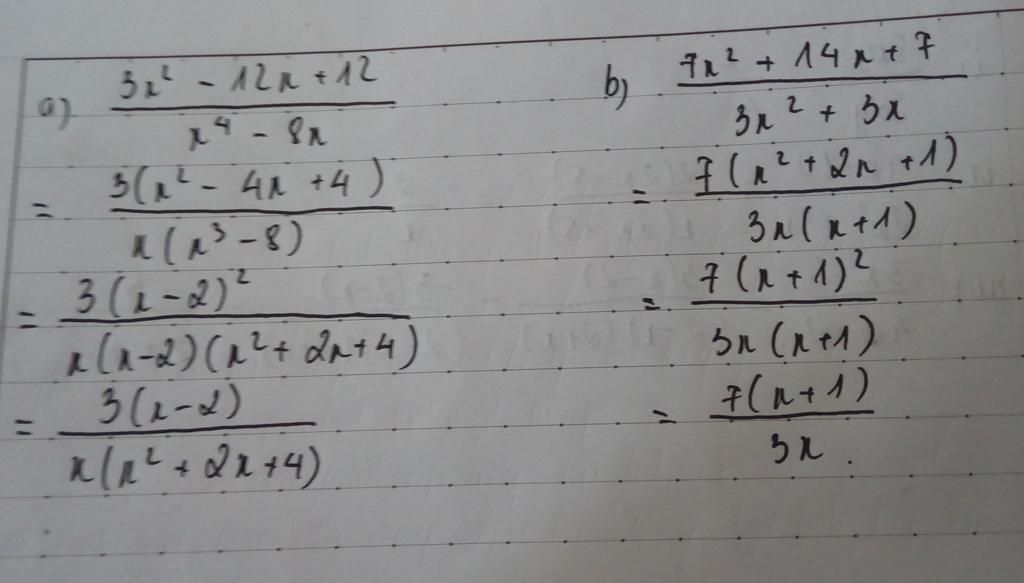 a) (3x² - 12x + 12) / (x⁴ - 8x)
= 3(x² - 4x + 4) / x(x³ - 8)
= 3(x - 2)² / x(x - 2)(x² + 2x + 4)
= 3(x - 2) / x(x² + 2x + 4)
b) (7x² + 14x + 7) / (3x² + 3x)
= 7(x² + 2x + 1) / 3x(x + 1)
= 7(x + 1)² / 3x(x + 1)
= 7(x + 1) / 3x .